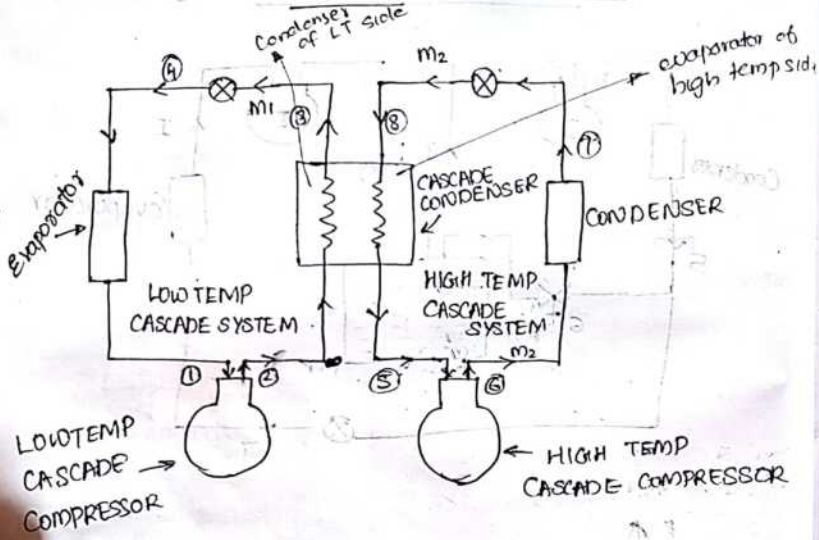 Condenser
of LT side
m2
evaporator of
high temp side
④
M1
③
⑧
⑦
Evaporator
CASCADE
CONDENSER
CONDENSER
LOW TEMP
CASCADE SYSTEM
HIGH TEMP
CASCADE
SYSTEM
m2
①
②
⑤
⑥
LOW TEMP
CASCADE
COMPRESSOR
HIGH TEMP
CASCADE COMPRESSOR